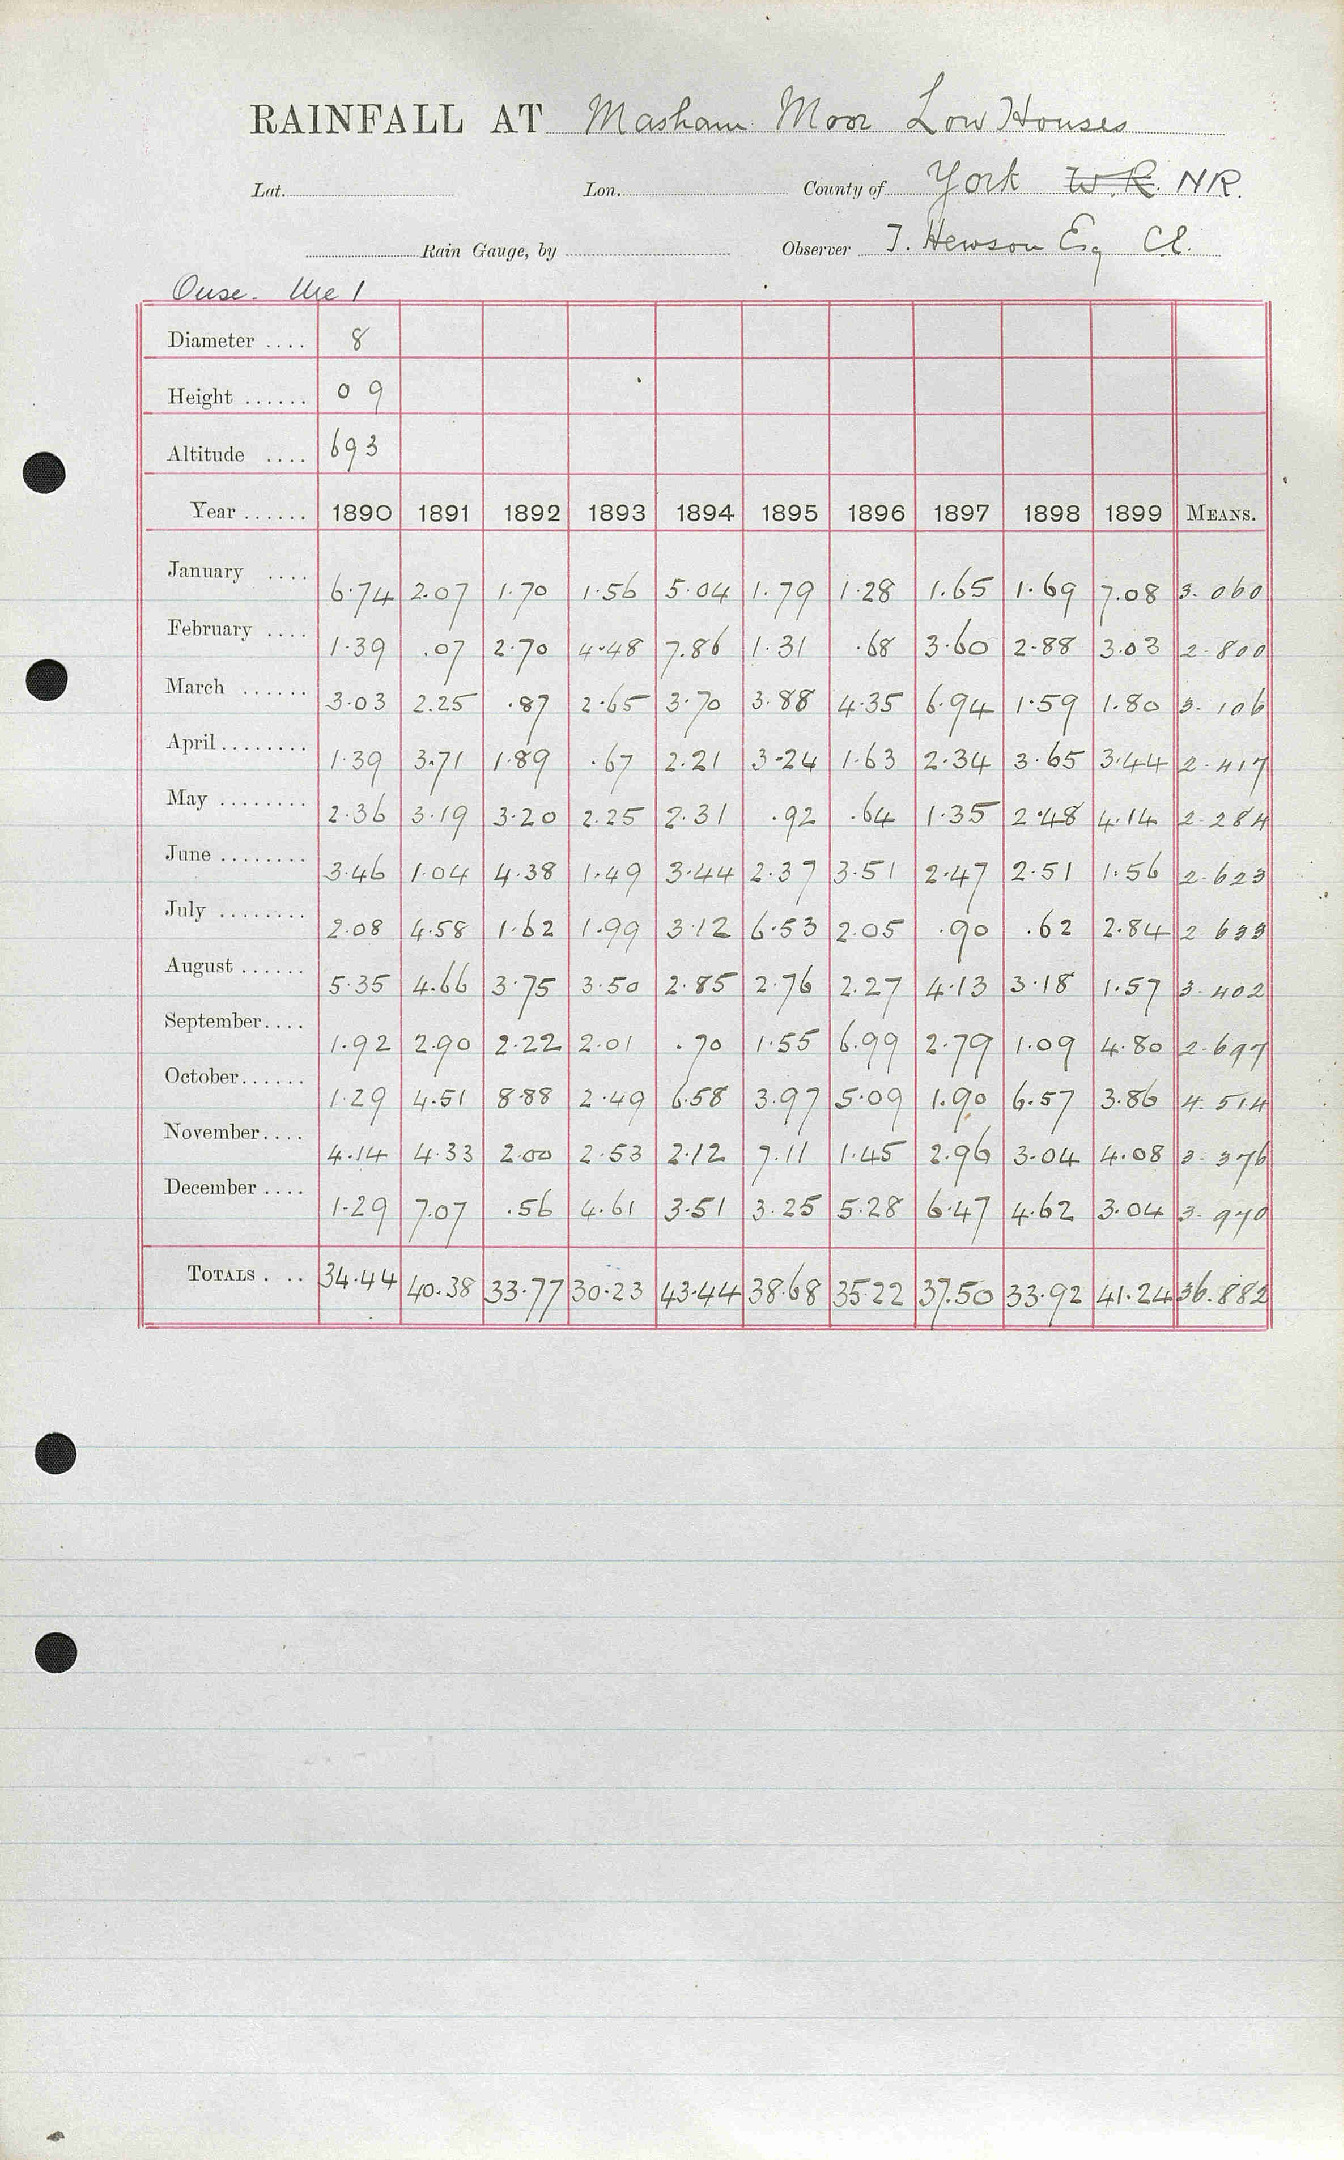 RAINFALL AT Masham Moor Low Houses
Lat. Lon. County of York W.R. NR.
Rain Gauge, by Observer T. Hewson Esq C.E.
Ouse. Ure 1
Diameter .... 8
Height ...... 0 9
Altitude .... 693
Year ...... 1890 1891 1892 1893 1894 1895 1896 1897 1898 1899 MEANS.
January .... 6.74 2.07 1.70 1.56 5.04 1.79 1.28 1.65 1.69 7.08 3.060
February .... 1.39 .07 2.70 4.48 7.86 1.31 .68 3.60 2.88 3.03 2.800
March ...... 3.03 2.25 .87 2.65 3.70 3.88 4.35 6.94 1.59 1.80 3.106
April ........ 1.39 3.71 1.89 .67 2.21 3.24 1.63 2.34 3.65 3.44 2.417
May ........ 2.36 3.19 3.20 2.25 2.31 .92 .64 1.35 2.48 4.14 2.284
June ........ 3.46 1.04 4.38 1.49 3.44 2.37 3.51 2.47 2.51 1.56 2.623
July ........ 2.08 4.58 1.62 1.99 3.12 6.53 2.05 .90 .62 2.84 2 633
August ...... 5.35 4.66 3.75 3.50 2.85 2.76 2.27 4.13 3.18 1.57 3.402
September .... 1.92 2.90 2.22 2.01 .70 1.55 6.99 2.79 1.09 4.80 2.697
October ...... 1.29 4.51 8.88 2.49 6.58 3.97 5.09 1.90 6.57 3.86 4.514
November .... 4.14 4.33 2.00 2.53 2.12 7.11 1.45 2.96 3.04 4.08 3.376
December .... 1.29 7.07 .56 4.61 3.51 3.25 5.28 6.47 4.62 3.04 3.970
TOTALS . .. 34.44 40.38 33.77 30.23 43.44 38.68 35.22 37.50 33.92 41.24 36.882